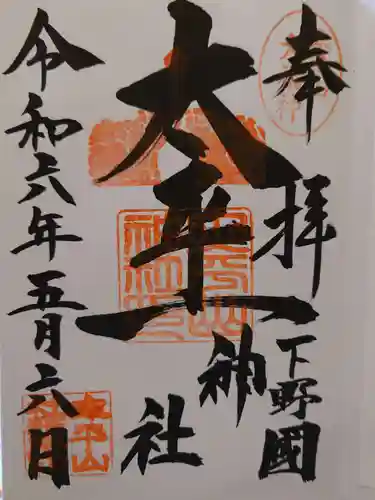 奉拝
下野國
太平山
神社
令和六年五月六日
太平山